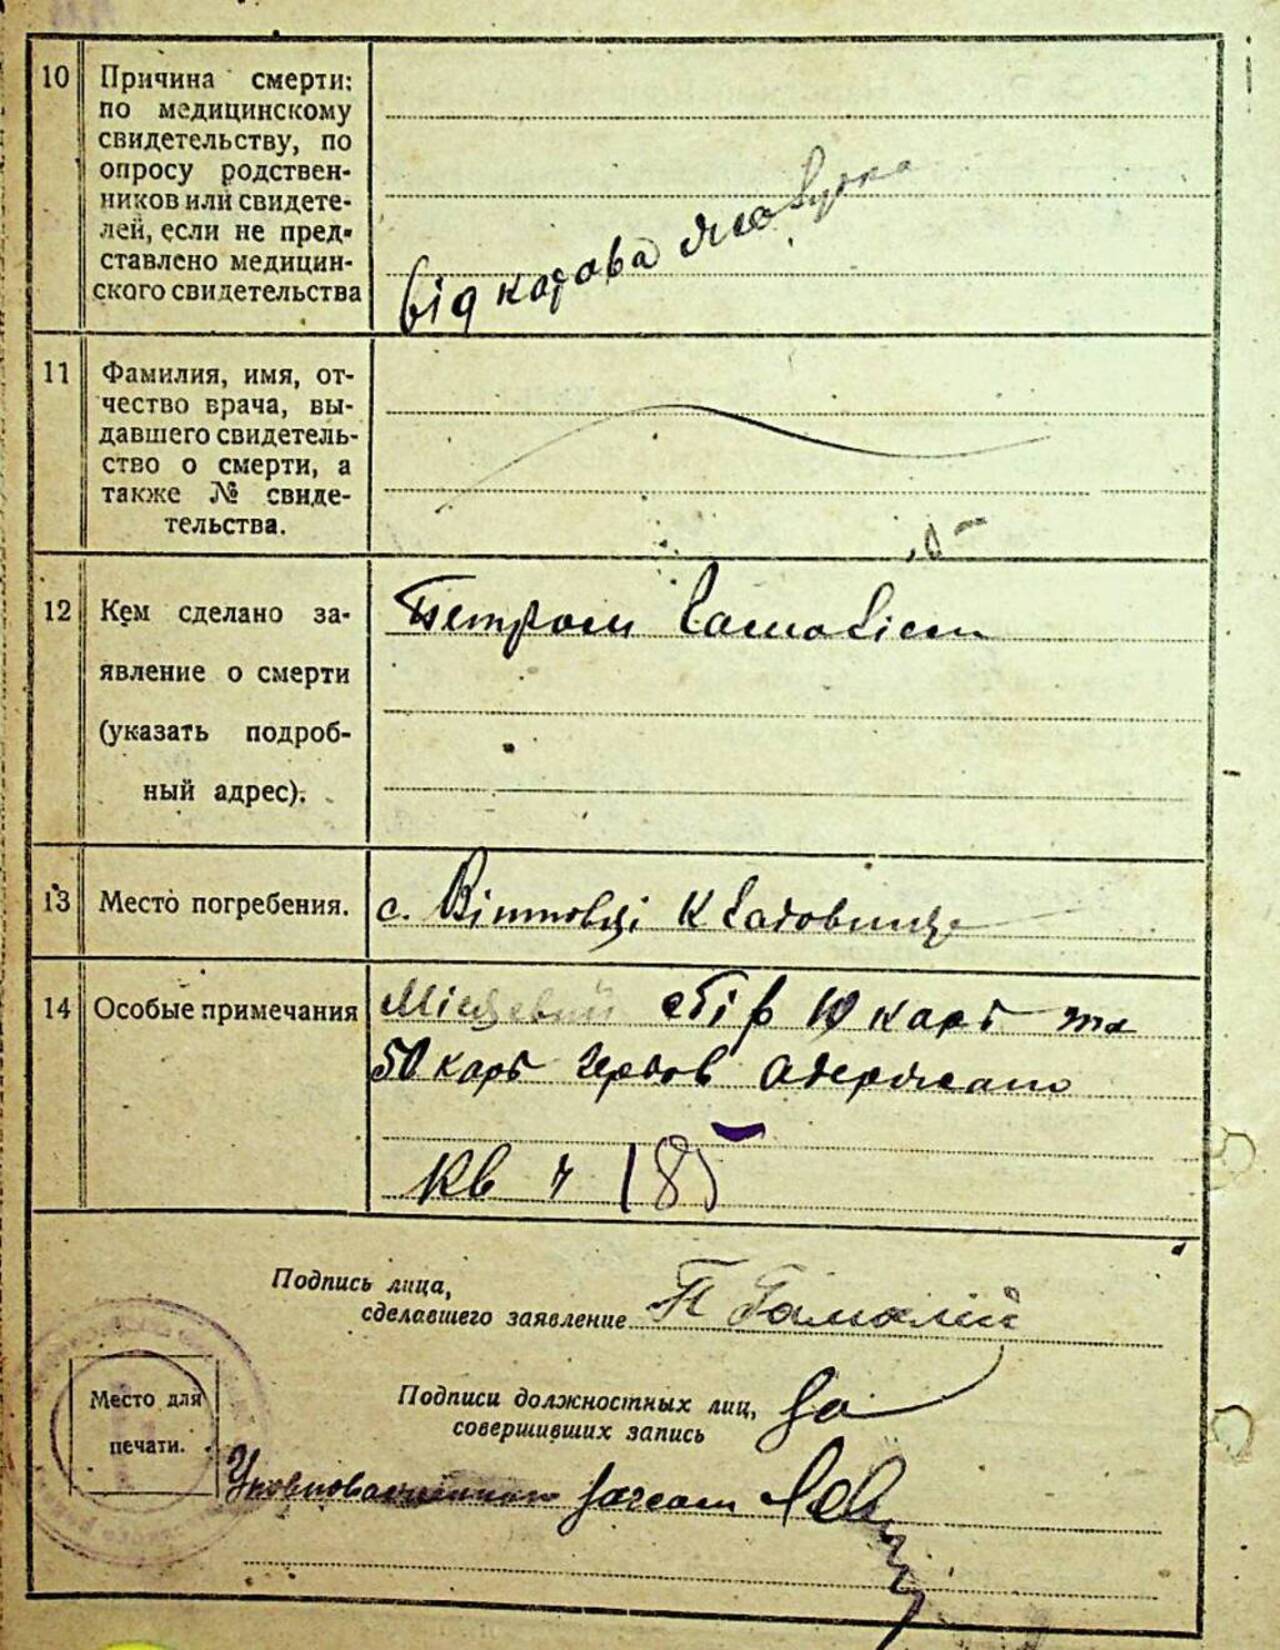 10
Причина смерти:
по медицинскому
свидетельству, по
опросу родствен-
ников или свидете-
лей, если не пред-
ставлено медицин-
ского свидетельства
від карова
11
Фамилия, имя, от-
чество врача, вы-
давшего свидетель-
ство о смерти, а
также № свиде-
тельства.
12
Кем сделано за-
явление о смерти
(указать подроб-
ный адрес).
Петром
13
Место погребения.
с. Вітовці Кладовище
14
Особые примечания
Місцевий збір 10 карб та
50 карб гербов одержано
Кв ч 185
Подпись лица,
сделавшего заявление П Гамалій
Место для
печати.
Подписи должностных лиц,
совершивших запись
Уповноваженного загсом